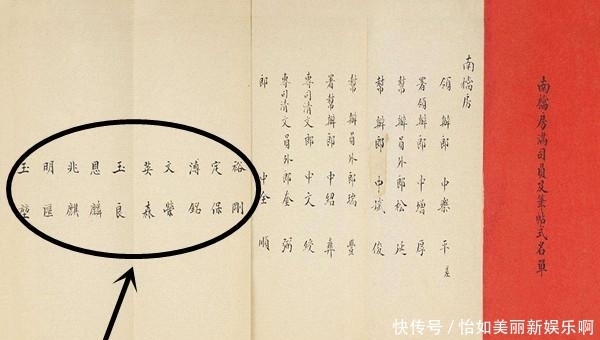 南檔房滿司員及筆帖式名單
南檔房
領辦郎中樂平差
署領辦郎中增厚
幫辦員外郎松廷
幫辦郎中誠俊
幫辦員外郎瑞豐
署幫辦郎中紹彝
專司清文郎中文綬
專司清文員外郎奎弼
郎中全順
裕剛
定保
溥銘
文榮
英森
玉良
恩麟
兆麒
明匯
玉堃
快传号／怡如美丽新娱乐啊